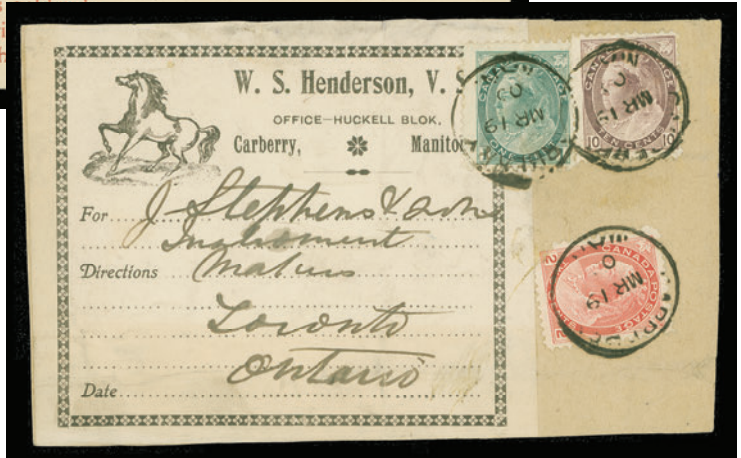 W. S. Henderson, V. S
OFFICE–HUCKELL BLOK,
Carberry, Manito
For J Stephens &
Instrument
Directions Makers
Toronto
Ontario
Date
CANADA POSTAGE
CANADA POSTAGE
10 TEN CENTS 10
MR 19
MR 19
CANADA POSTAGE
2 2
MR 19